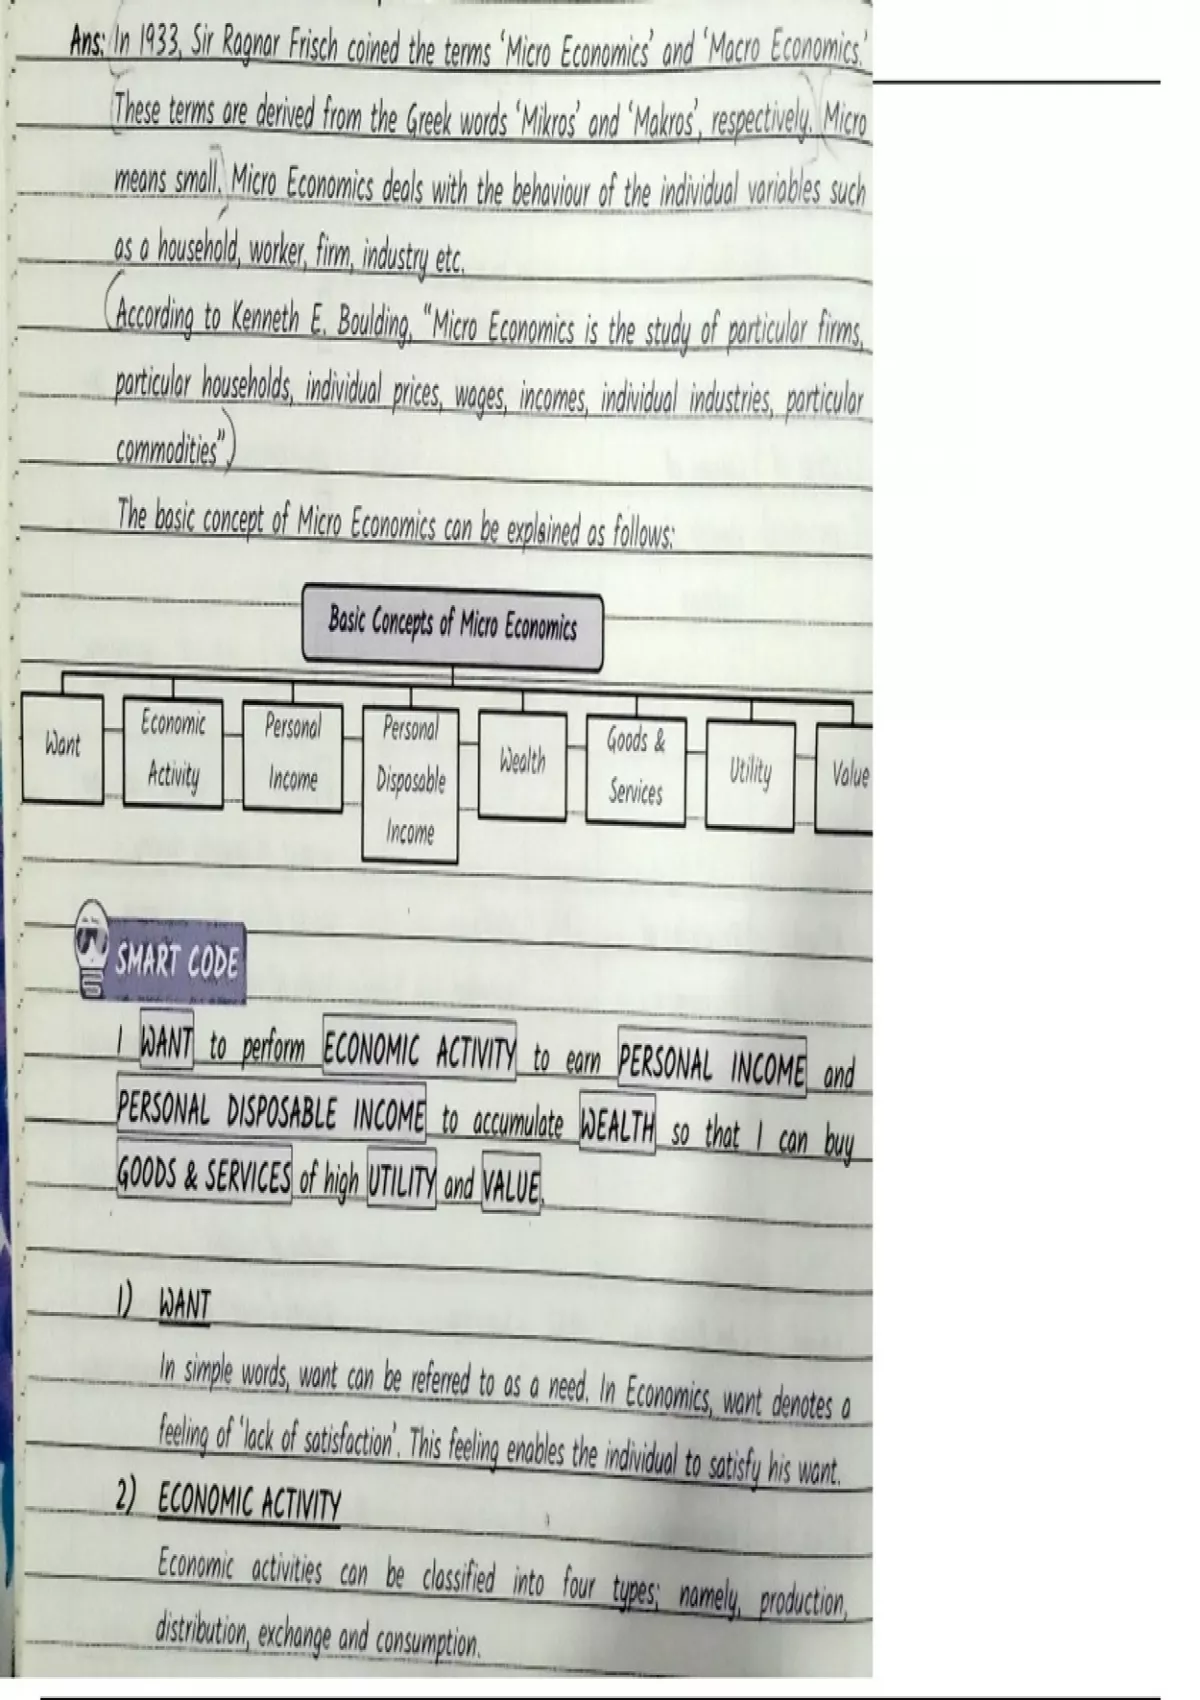 Ans: In 1933, Sir Ragnar Frisch coined the terms ‘Micro Economics’ and ‘Macro Economics.’
These terms are derived from the Greek words ‘Mikros’ and ‘Makros’, respectively. Micro
means small. Micro Economics deals with the behaviour of the individual variables such
as a household, worker, firm, industry etc.
According to Kenneth E. Boulding, “Micro Economics is the study of particular firms,
particular households, individual prices, wages, incomes, individual industries, particular
commodities”)
The basic concept of Micro Economics can be explained as follows:
Basic Concepts of Micro Economics
Want
Economic
Activity
Personal
Income
Personal
Disposable
Income
Wealth
Goods &
Services
Utility
Value
SMART CODE
I WANT to perform ECONOMIC ACTIVITY to earn PERSONAL INCOME and
PERSONAL DISPOSABLE INCOME to accumulate WEALTH so that I can buy
GOODS & SERVICES of high UTILITY and VALUE.
1) WANT
In simple words, want can be referred to as a need. In Economics, want denotes a
feeling of ‘lack of satisfaction’. This feeling enables the individual to satisfy his want.
2) ECONOMIC ACTIVITY
Economic activities can be classified into four types; namely, production,
distribution, exchange and consumption.